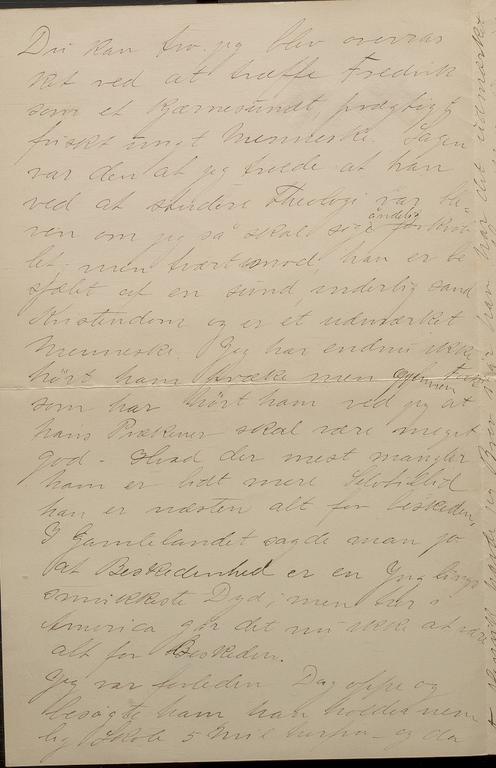 Du kan tro jeg blev overras
ket ved at træffe Fredrik
som et kjærnesundt, prægtigt
friskt ungt Menneske. Sagen
var den at jeg troede at han
ved at studere Theologi var ble
ven om jeg så skal sige åndelig forkrøb
let, men tvært imod, han er be
sjælet af en sund, inderlig sand
Kristendom og er et udmærket
Menneske. Jeg har endnu ikke
hört ham præke men gjennem
som har hört ham ved jeg at
hans Prækener skal være meget
god - Hvad der mest mangler
ham er lidt mere Selvtillid
han er næsten alt for beskeden,
I Gamlelandet sagde man jo
at Beskedenhed er en Ynglings
smukkeste Dyd, men her i
America går det nu ikke at være
alt for Beskeden.
Jeg var forleden Dag oppe og
besøgte ham, han holder nem
lig Skole 5 Mil herfra - og da